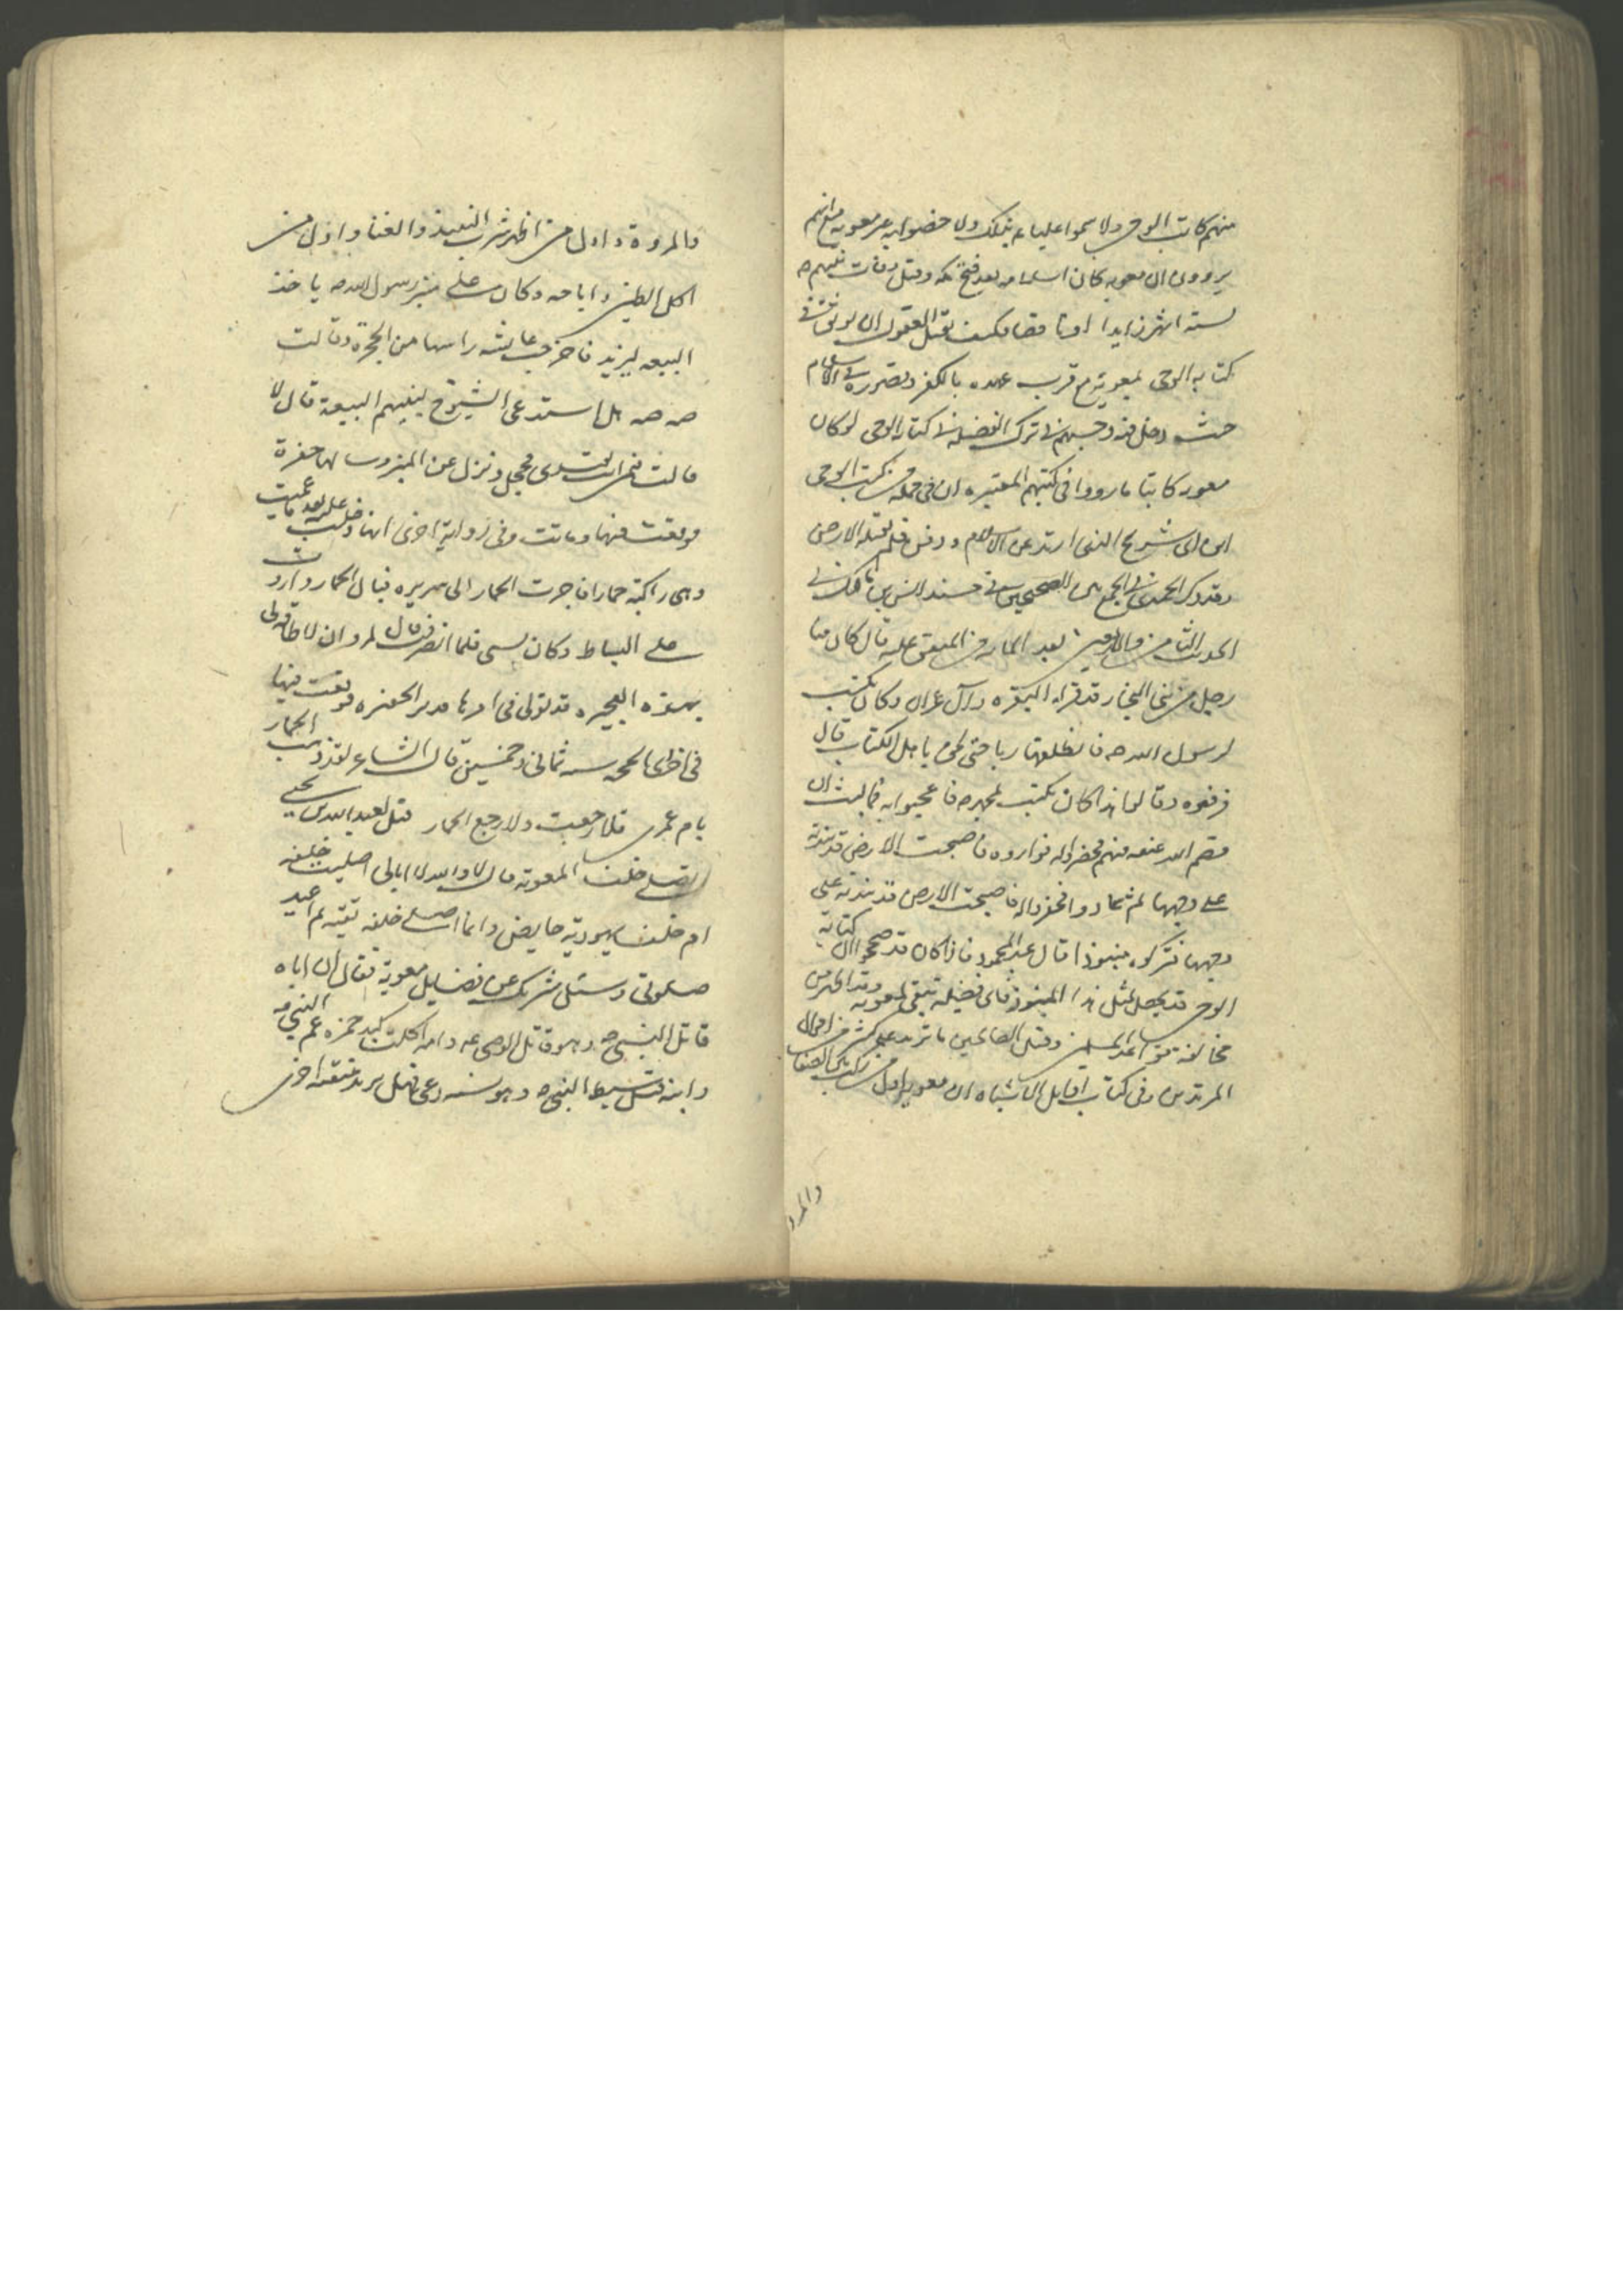 منهم كاتب الوحى ولا سموا عليا ع بذلك ولا خصوا به غير معويه مع انهم
يروون ان معويه كان اسلامه بعد فتح مكه وقبل وفات نبيهم ص
لستة اشهر زايدا او ناقصا فكيف تقبل العقول ان يوثق في
كتابة الوحى بمعوية مع قرب عهده بالكفر وقصوره في الاسلام
حيث دخل فيه وحسبهم في ترك الفضيلة في كتاب الوحى لو كان
معويه كاتبا ما رووا في كتبهم المعتبره ان في جمله من كتب الوحى
ابن ابى شرح الذى ارتد عن الاسلام ودفن فلم تقبله الارض
وقد ذكر الحميدى في الجمع بين الصحيحين في مسند انس بن مالك في
الحديث الثامن والاربعين بعد المائه من المتفق عليه قال كان منا
رجل من بنى النجار قد قراء البقره وآل عمران وكان يكتب
لرسول الله ص فانطلق هاربا حتى لحق باهل الكتاب قال
فرفعوه وقالوا هذا كان يكتب لمحمد ص فاعجبوا به فما لبث ان
قصم الله عنقه فيهم فحفروا له فواروه فاصبحت الارض قد نبذته
على وجهها ثم عادوا فحفروا له فاصبحت الارض قد نبذته على
وجهها فتركوه منبوذا قال عبد المحمود فاذا كان قد صح ان كتابة
الوحى قد يحصل لمثل هذا المنبوذ فاى فضيلة تبقى لمعويه وقد اظهر من
مخالفة قواعد المسلمين وقتل الصالحين ما تزيد على كثير من احوال
المرتدين وفى كتاب اوايل الاشباه ان معويه اول من ركب بين الصفا
والمرو
والمروة واول من اظهر شرب النبيذ والغنا واول من
اكل الطين واباحه وكان على منبر رسول الله ص ياخذ
البيعه ليزيد فاخرجت عايشه راسها من الحجرة وقالت
صه صه هل استدعى الشيوخ لبنيهم البيعة قال لا
قالت فبمن تقتدى فخجل ونزل عن المنبر وبنا لها حفرة
فوقعت فيها وماتت وفى رواية اخرى انها دخلت عليه بعد ما عميت
وهى راكبة حمارا فاجرت الحمار الى سريره فبال الحمار وراث
على البساط وكان فلما انصرفت قال لمروان لا طاقه لى
بهذه العجيره قد تولى في امرها مدبر الحفره فوقعت فيها
فى اخر ذى الحجه سنه ثمانى وخمسين قال الشاعر لقد ذهب الحمار
بام عمرو فلا رجعت ولا رجع الحمار قيل لعبد الله بن يحيى
اتصلى خلف المعويه قال لا والله لا ابالى اصليت خلفه
ام خلف يهودية حايض وانما اصلى خلفه تقيه ثم اعيد
صلوتى وسئل شريك عن فضايل معوية فقال ان اباه
قاتل النبى ص وهو قاتل الوصى ع وامه اكلت كبد حمزه عم النبى ص
وابنه قتل سبط النبى ص